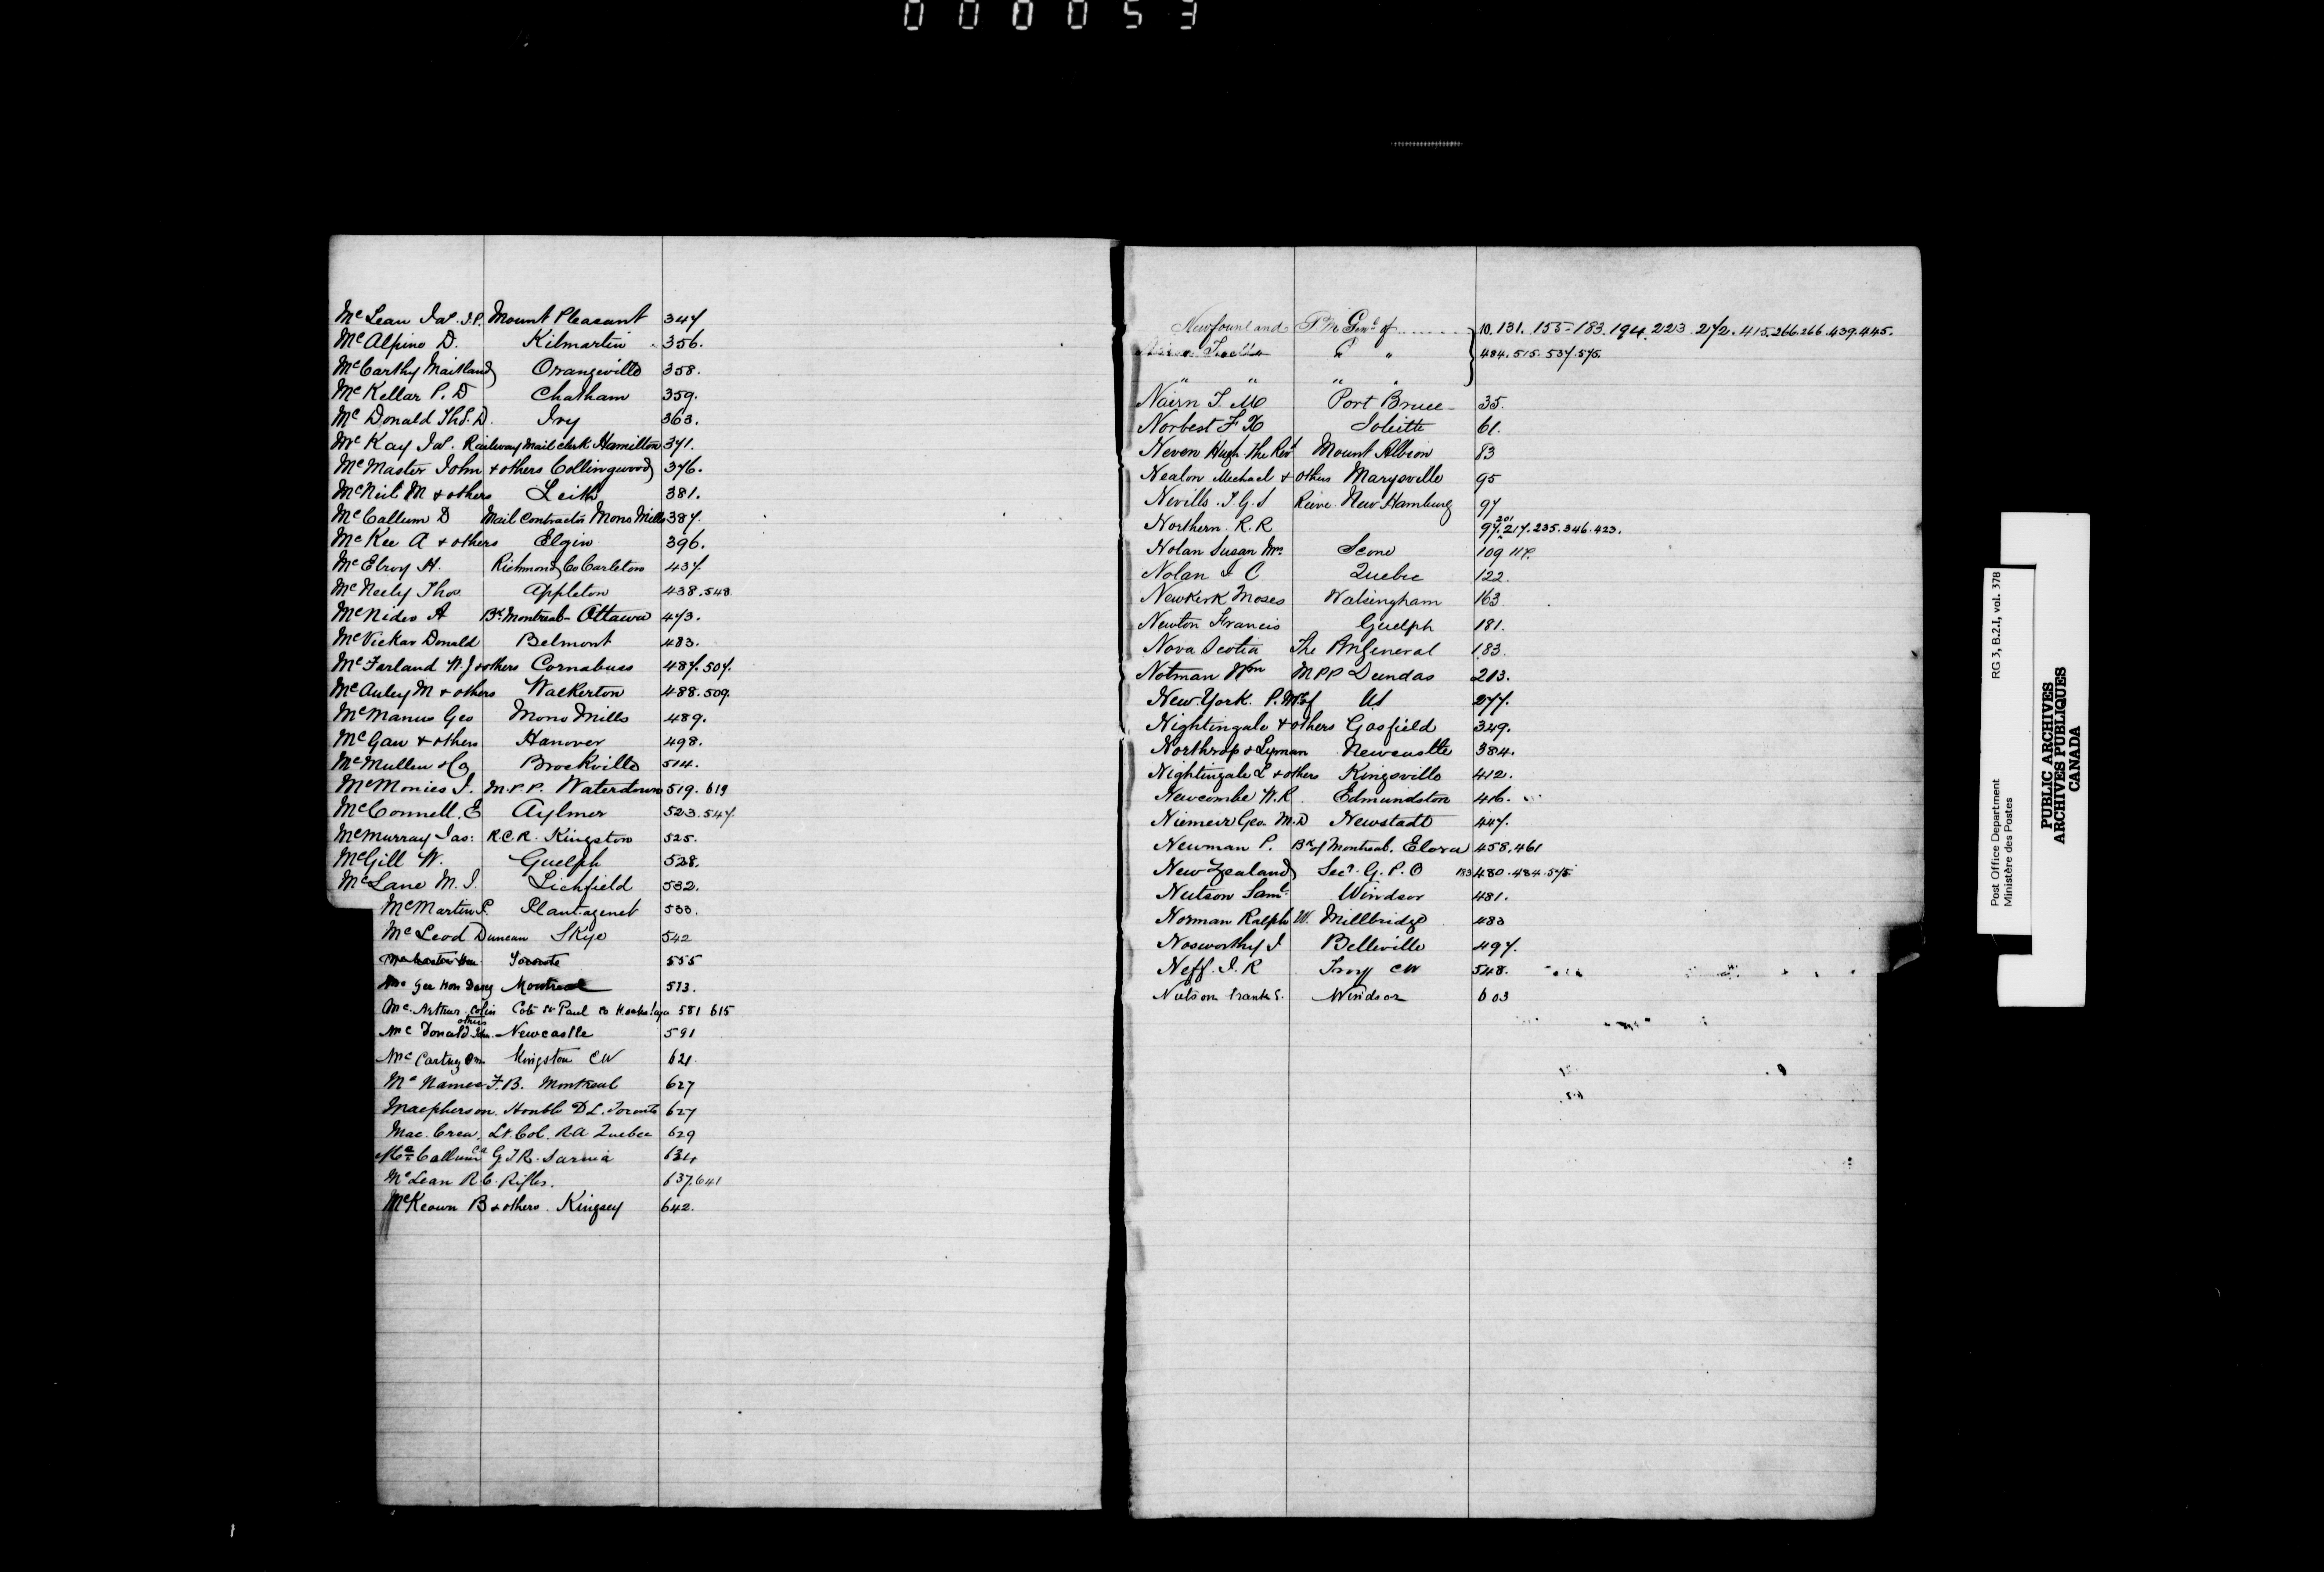 000053
McLean Jas. J.P. Mount Pleasant 347
McAlpine D. Kilmartin 356.
McCarthy Maitland Orangeville 358.
McKellar P. D Chatham 359.
McDonald Ths. D. Ivy 363.
McKay Jas. Railway Mail Clerk Hamilton 371.
McMaster John & others Collingwood 376.
McNeil M & others Leith 381.
McCallum D Mail Contractor Mono Mills 387.
McKee A & others Elgin 396.
McElroy H. Richmond Co Carleton 437
McNeely Thos Appleton 438.548
McNider A Bk Montreal - Ottawa 473.
McVickar Donald Belmont 483.
McFarland W.J & others Cornabuss 487.507.
McAuley M & others Walkerton 488.509.
McManus Geo Mono Mills 489.
McGaw & others Hanover 498.
McMullen & Co Brockville 514.
McMonies J. M.P.P. Waterdown 519. 619
McConnell. E Aylmer 523.547.
McMurray Jas: R.C.R. Kingston 525.
McGill W. Guelph 528.
McLane M. J. Lichfield 532.
McMartin P. Plantagenet 533.
McLeod Duncan Skye 542
Toronto 555
McGee Hon Darcy Montreal 573.
McArthur Colin Cote St Paul Co Hochelaga 581 615
others
McDonald Newcastle 591
McCartney Kingston CW 621.
McNamee F.B. Montreal 627
Macpherson. Honble D L. Toronto 627
Mac. Crea. Lt. Col. R.A Quebec 629
McCallum G T R. Sarnia 634
McLean R C Rifles. 637.641
McKeown B & others. Kingsey 642.
Newfoundland P.M Genl of 10. 131. 155-183. 194. 223. 272. 415.266.266.439.445.
" " 484.515.537.575.
" " " "
Nairn T. M Port Bruce - 35.
Norbest F X Joliette 61.
Neven Hugh The Revd Mount Albion 83
Nealon Michael & others Marysville 95
Nevills. J. G. S Reeve New Hamburg 97
Northern. R.R 97.201.217.235.346.423.
Nolan Susan Mrs Scone 109 117.
Nolan J C Quebec 122.
Newkirk Moses Walsingham 163.
Newton Francis Guelph 181.
Nova Scotia The PMGeneral 183.
Notman Wm MPP Dundas 213.
New York. P.M of US 277.
Nightingale & others Gosfield 349.
Northrop & Lyman Newcastle 384.
Nightingale L & others Kingsville 412.
Newcombe W.R. Edmundston 416.
Niemeir Geo. M.D Newstadt 447.
Newman P. Bk of Montreal. Elora 458.461
New Zealand Secy. G. P. O 183 480. 484. 575
Nutson Saml. Windsor 481.
Norman Ralph W. Millbridge 483
Nosworthy J Belleville 497.
Neff. J. R Troy CW 548.
Nutson Frank S. Windsor 603
Post Office Department RG 3, B.2.I, vol. 378
Ministère des Postes
PUBLIC ARCHIVES
ARCHIVES PUBLIQUES
CANADA